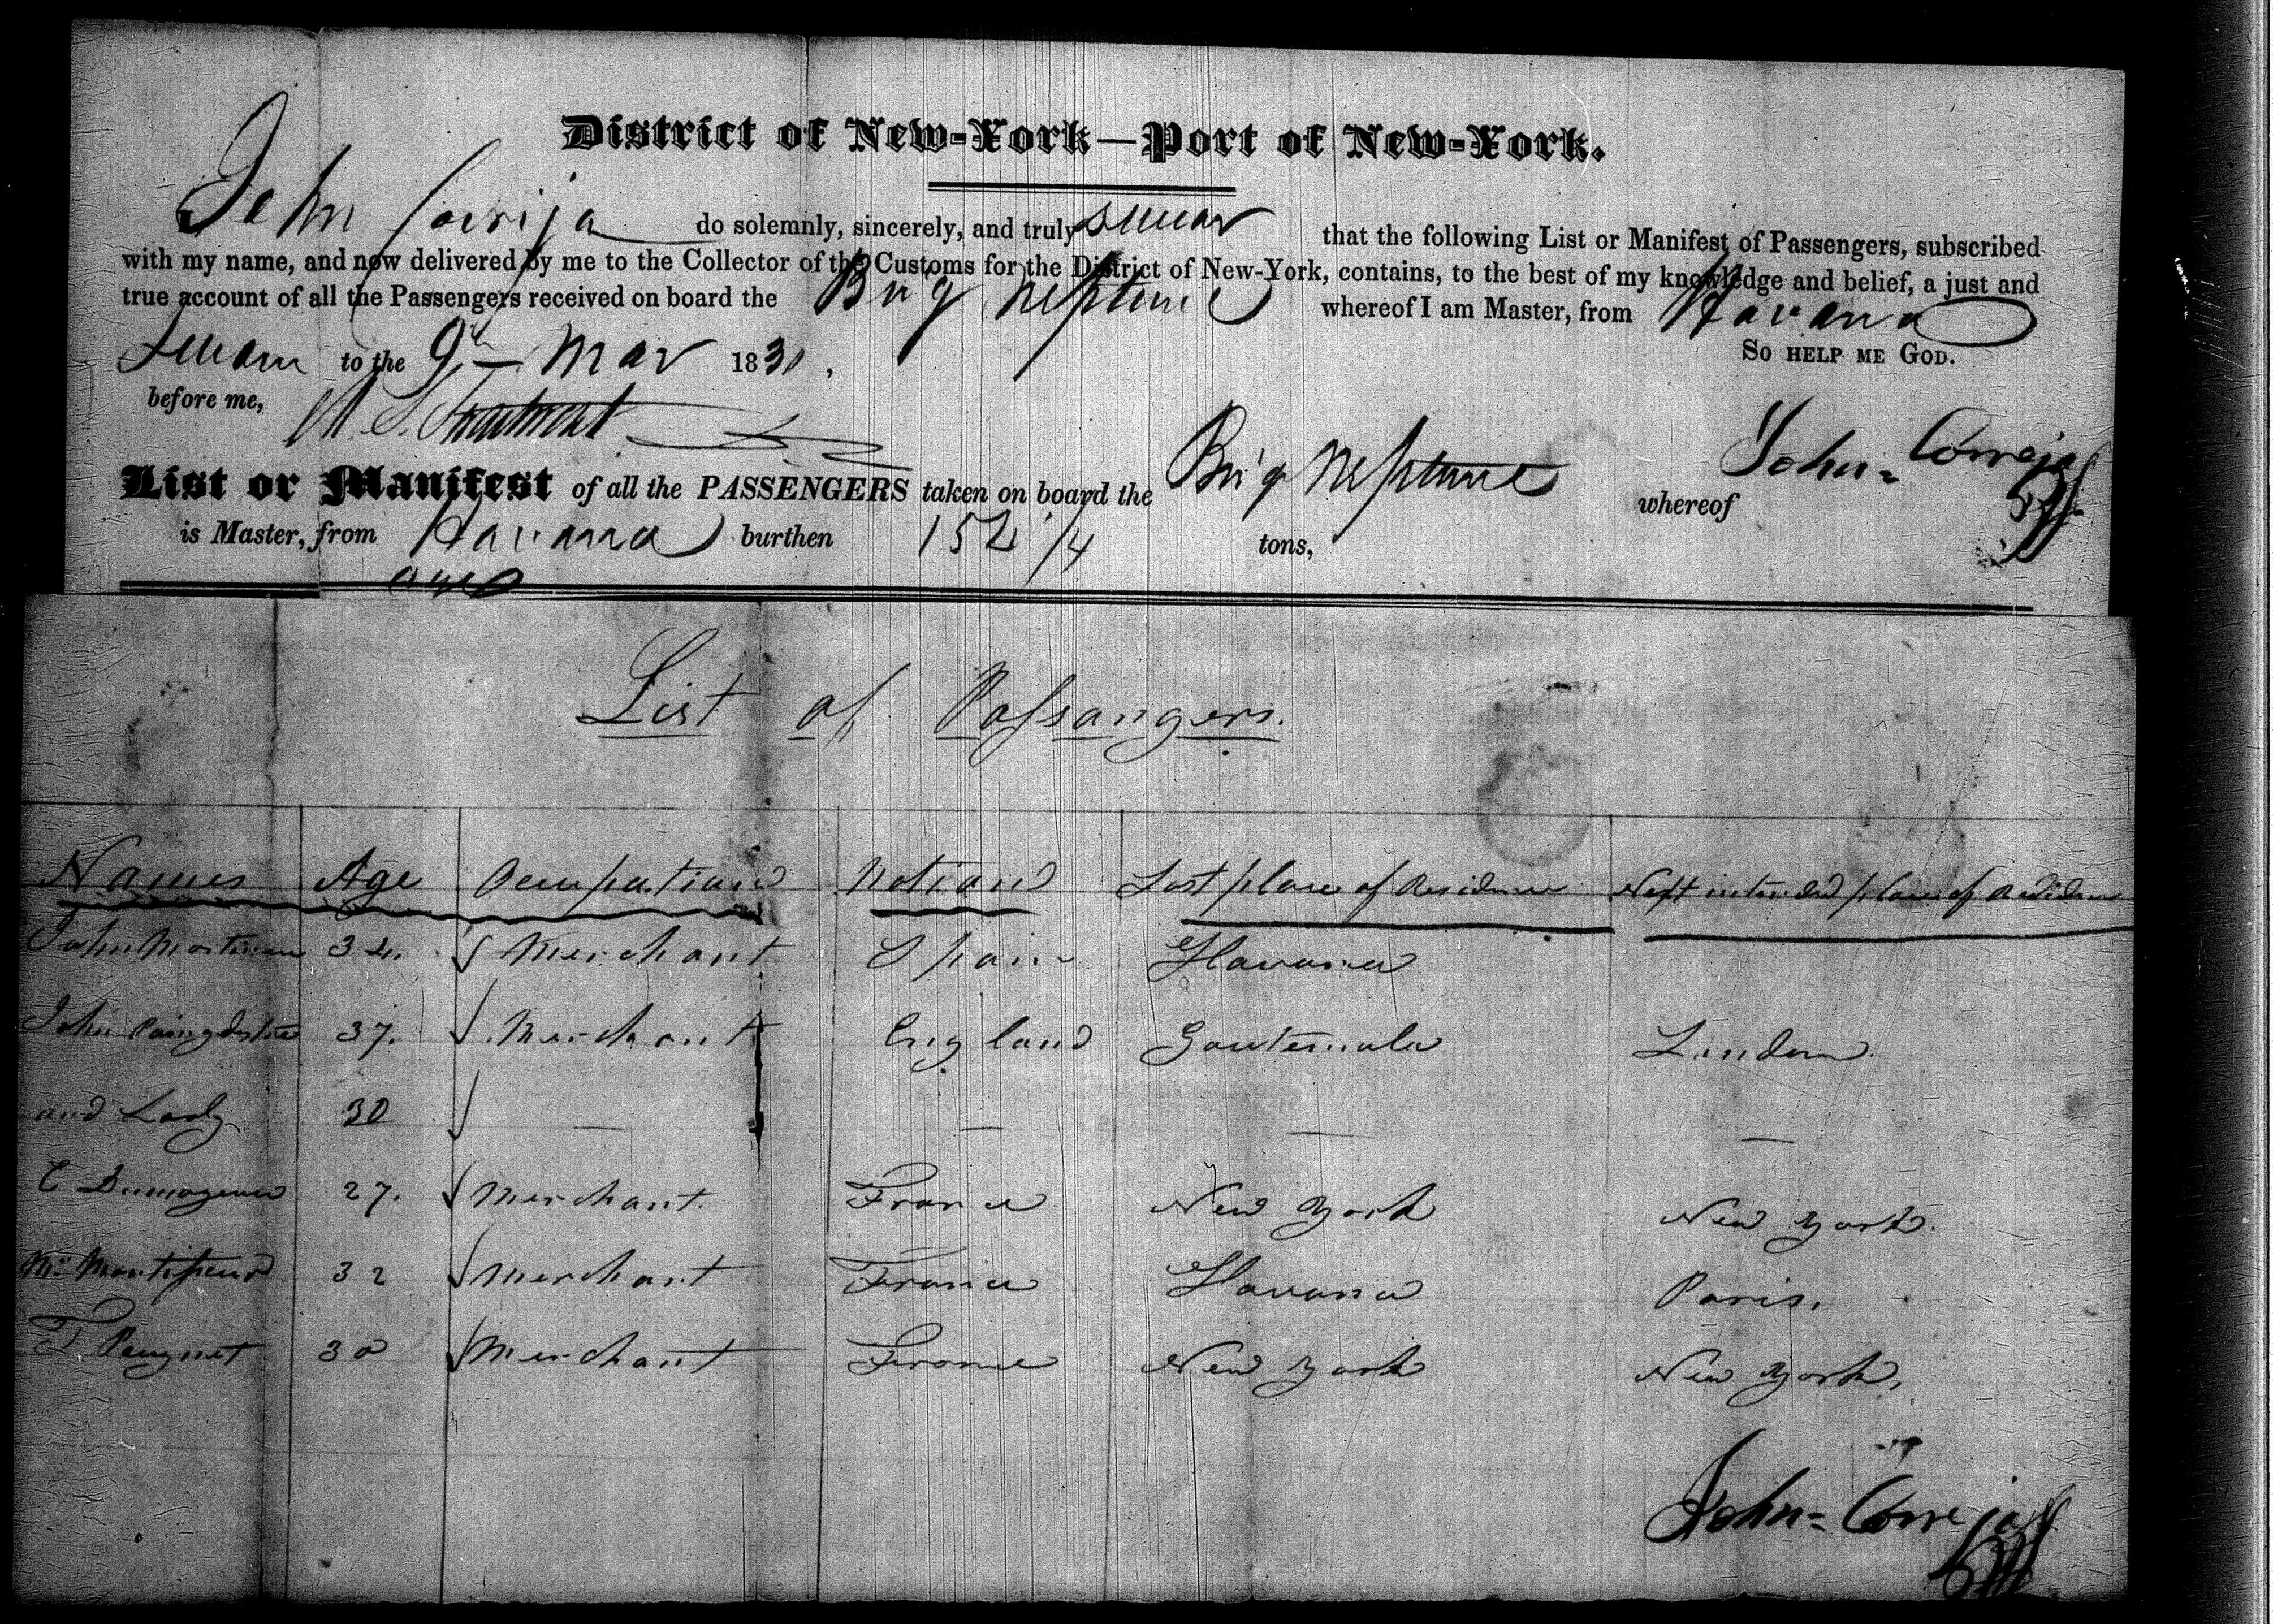 District of New-York—Port of New-York.
John Correja do solemnly, sincerely, and truly swear that the following List or Manifest of Passengers, subscribed
with my name, and now delivered by me to the Collector of the Customs for the District of New-York, contains, to the best of my knowledge and belief, a just and
true account of all the Passengers received on board the Brig Neptune whereof I am Master, from Havana
Sworn to the 9th Mar 1831, So help me God.
before me,
John Correja
List or Manifest of all the PASSENGERS taken on board the Brig Neptune whereof
is Master, from Havana burthen 152 /4 tons,
List of Passangers.
Names Age Occupations Nations Last place of Residence Next intended place of Residence
John 34. Merchant Spain Havana
John 37. Merchant England Gautemala London.
and Lady 30 — — — —
C 27. Merchant. France New York New York.
Mr 32 Merchant France Havana Paris.
F Peugnet 30 Merchant France New York New York,
John Correja